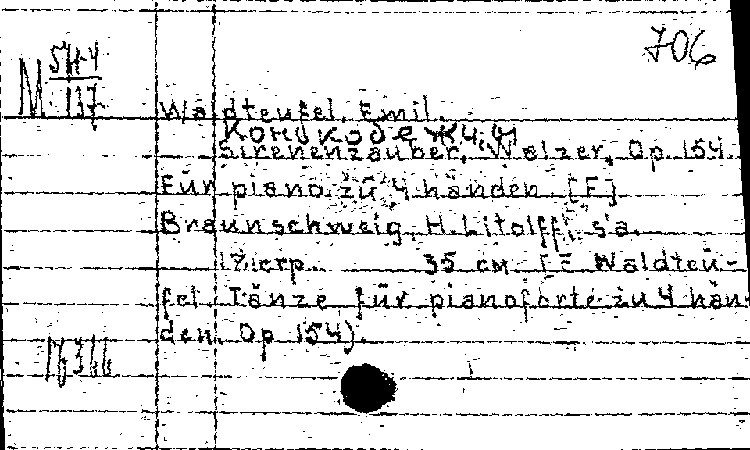 706
M 57-4
137
Waldteufel, Emil.
Sirenenzauber, Walzer, Op 154
Für piano zu 4 händen. [F]
Braunschweig, H. Litolff, s.a.
17 стр. 35 см. [E Waldteu-
fel. Tänze für pianoforte zu 4 hän-
den. Op 154).